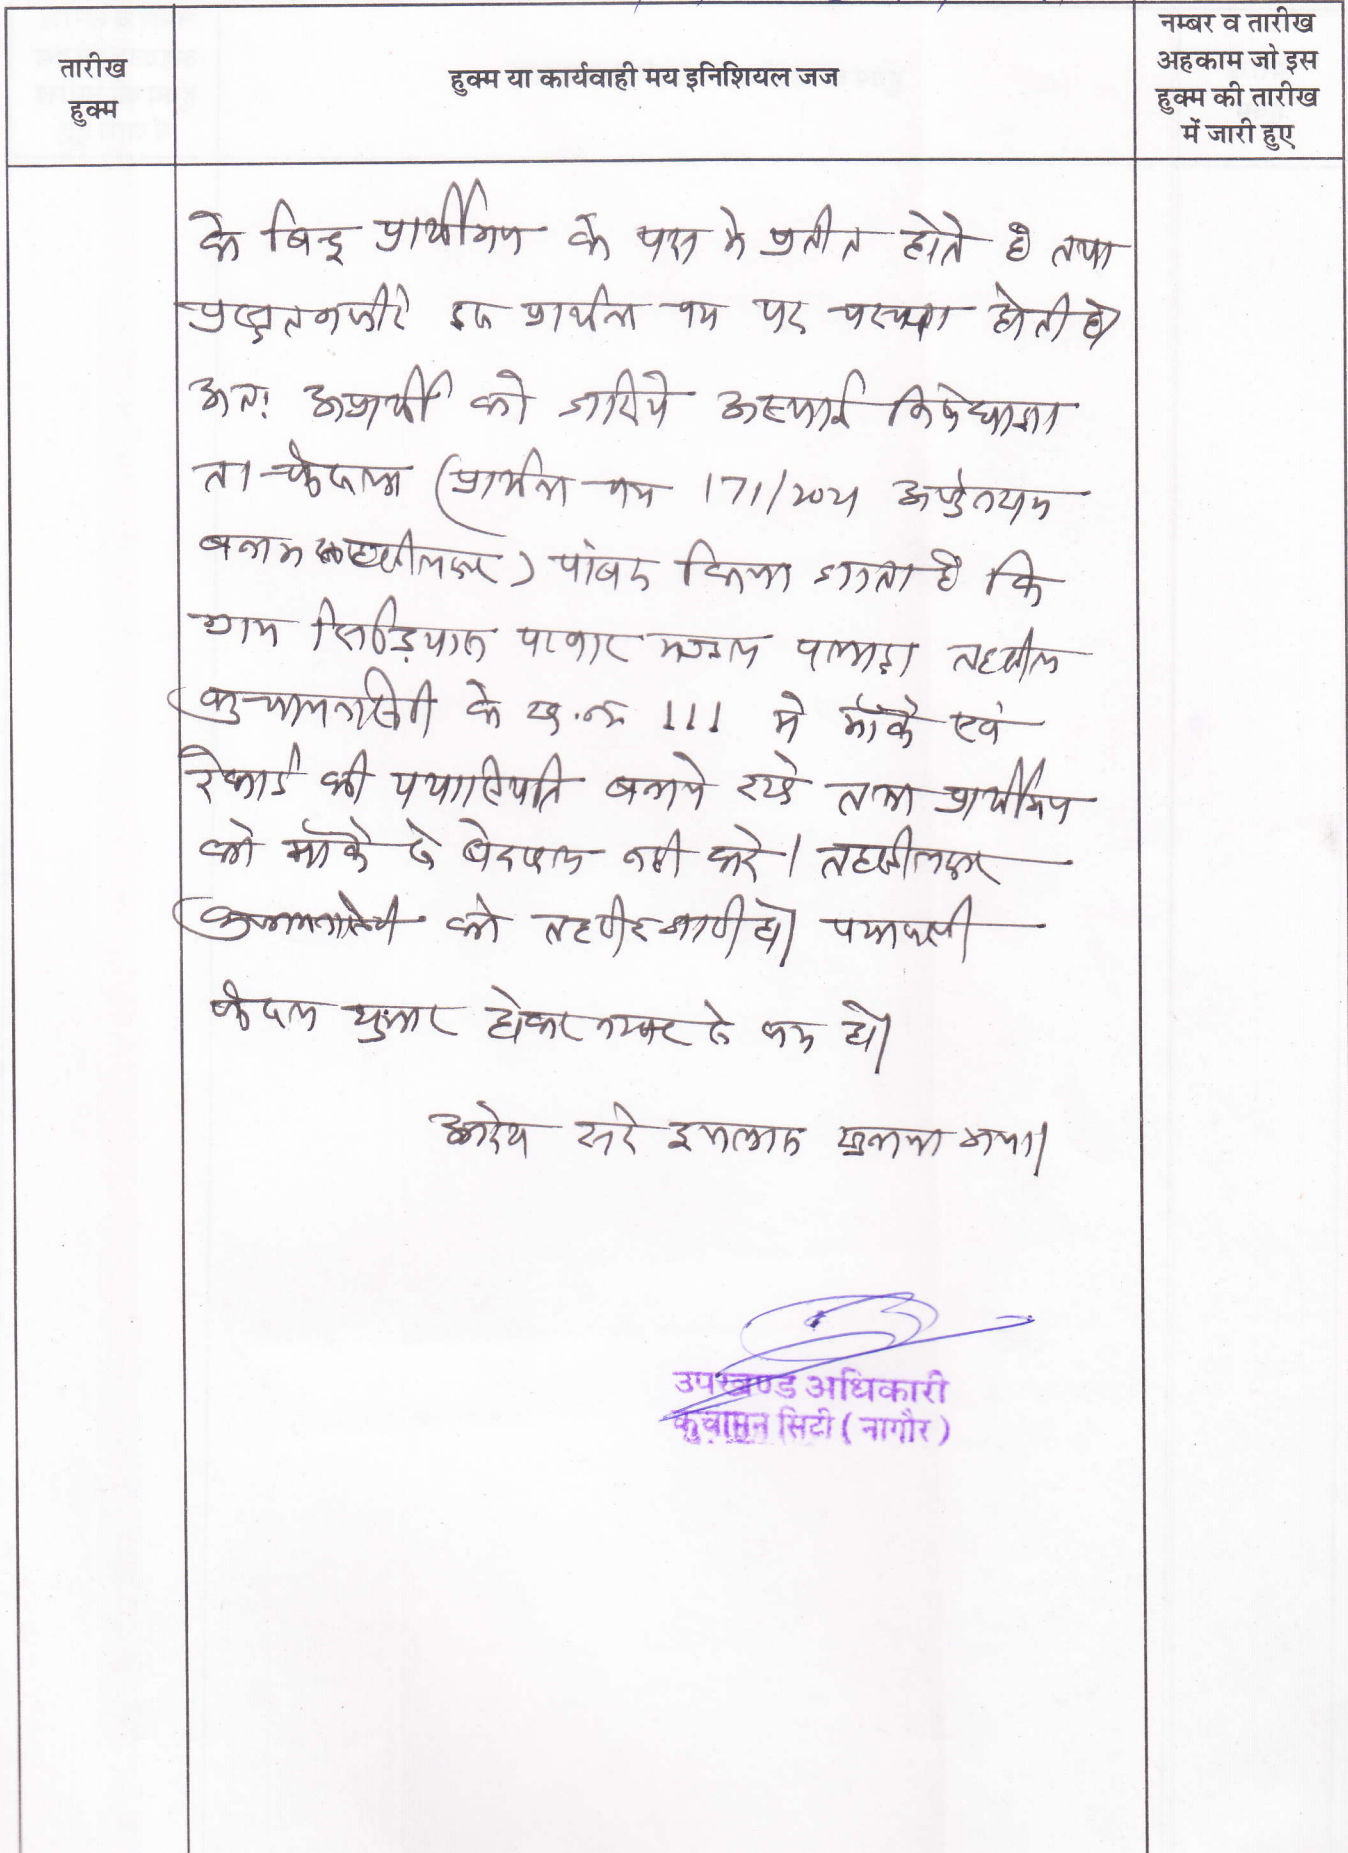 तारीख
हुक्म
हुक्म या कार्यवाही मय इनिशियल जज
नम्बर व तारीख
अहकाम जो इस
हुक्म की तारीख
में जारी हुए
के बिन्दु प्रार्थीगण के पक्ष मे प्रतीत होते है तथा
प्रस्तुत नजीरे इस प्रार्थना पत्र पर चस्पा होती है।
अतः अप्रार्थी को जरिये अस्थाई निषेधाज्ञा
ता फैसला (प्रार्थना पत्र 171/2021
बनाम तहसीलदार) पांबद किया जाता है कि
ग्राम पटवार मण्डल तहसील
कुचामनसिटी के ख.नं. 111 मे मौके एवं
रेकार्ड की यथास्थिति बनाये रखे तथा प्रार्थीगण
को मौके से बेदखल नही करे। तहसीलदार
कुचामनसिटी को तहरीर जारी हो। पत्रावली
फैसल शुमार होकर नम्बर से कम हो।
आदेश सरे इजलास सुनाया गया।
उपखण्ड अधिकारी
कुचामन सिटी (नागौर)